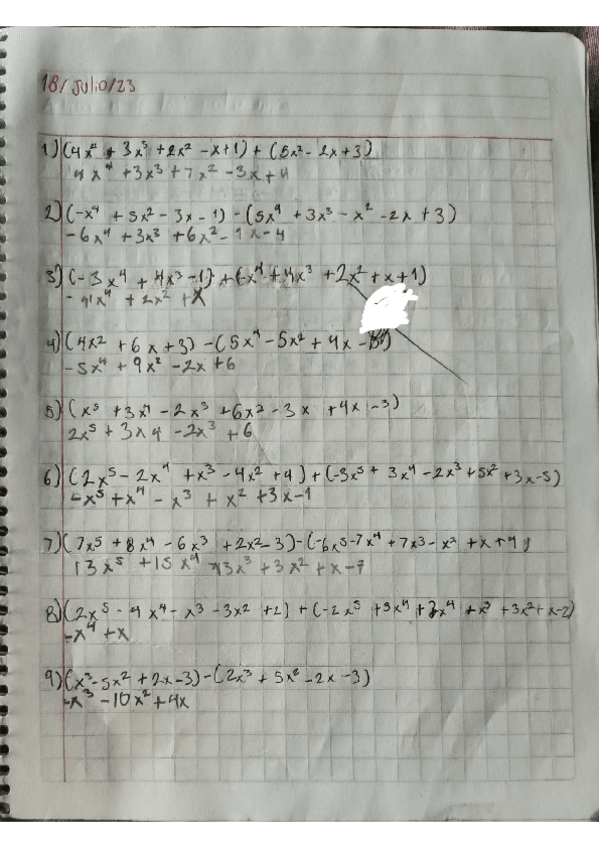 18/Julio/23
1)(4x⁴ + 3x³ + 2x² - x + 1) + (5x² - 2x + 3)
4x⁴ + 3x³ + 7x² - 3x + 4
2)(-x⁴ + 5x² - 3x - 1) - (5x⁴ + 3x³ - x² - 2x + 3)
-6x⁴ + 3x³ + 6x² - 1x - 4
3)(-3x⁴ + 4x³ - 1) + (-x⁴ + 4x³ + 2x² + x + 1)
-4x⁴ + 2x² + x
4)(4x² + 6x + 3) - (5x⁴ - 5x² + 4x -
-5x⁴ + 9x² - 2x + 6
5)(x⁵ + 3x⁴ - 2x³ + 6x² - 3x + 4x - 3)
2x⁵ + 3x4 - 2x³ + 6
6)(2x⁵ - 2x⁴ + x³ - 4x² + 4) + (-3x⁵ + 3x⁴ - 2x³ + 5x² + 3x - 5)
-x⁵ + x⁴ - x³ + x² + 3x - 1
7)(7x⁵ + 8x⁴ - 6x³ + 2x² - 3) - (-6x⁵ - 7x⁴ + 7x3 - x² + x + 4)
13x⁵ + 15x⁴ - 13x³ + 3x² + x - 7
8)(2x⁵ - 4x⁴ - x³ - 3x² + 2) + (-2x⁵ + 3x⁴ + 2x⁴ + x³ + 3x² + x - 2)
-x⁴ + x
9)(x³ - 5x² + 2x - 3) - (2x³ + 5x² - 2x - 3)
-x³ - 10x² + 4x